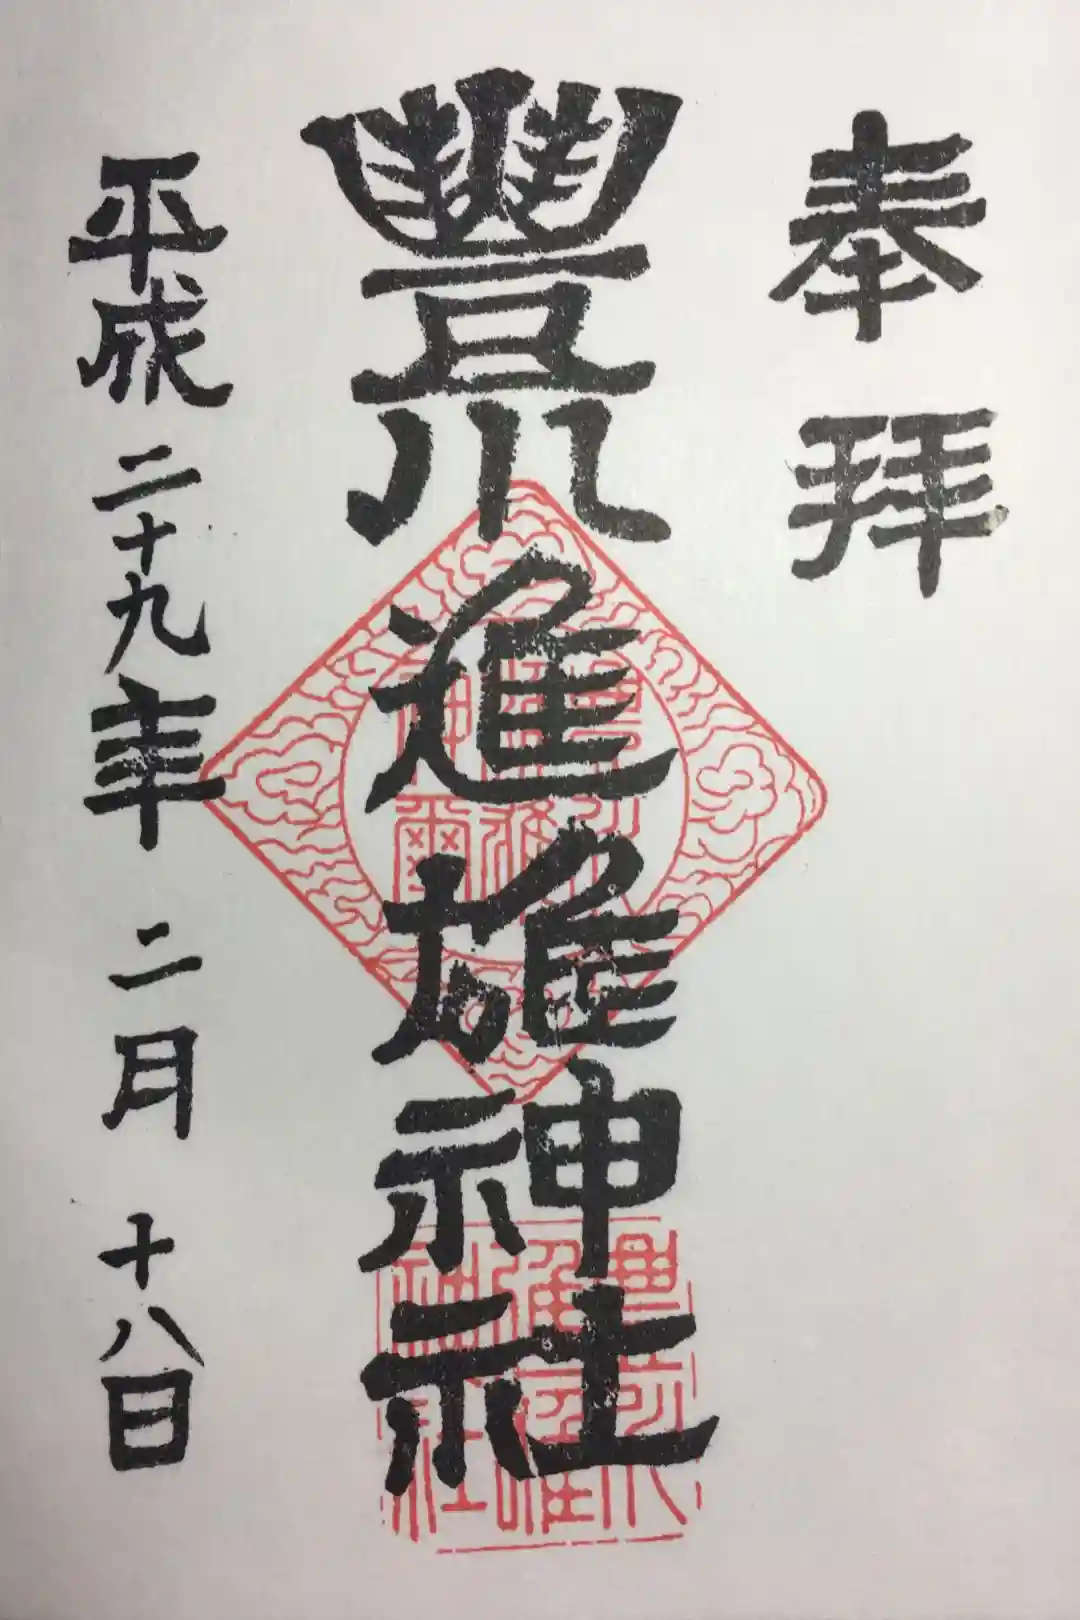 奉拝
豐川進雄神社
平成二十九年二月十八日